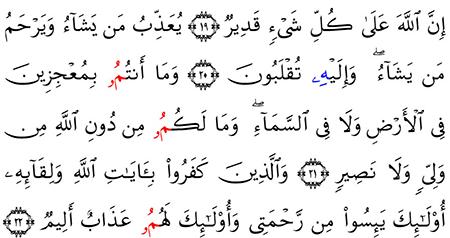 إِنَّ ٱللَّهَ عَلَىٰ كُلِّ شَىْءٍۢ قَدِيرٌۭ ﴿١٩﴾ يُعَذِّبُ مَن يَشَآءُ وَيَرْحَمُ
مَن يَشَآءُ ۖ وَإِلَيْهِۦ تُقْلَبُونَ ﴿٢٠﴾ وَمَآ أَنتُمُۥ بِمُعْجِزِينَ
فِى ٱلْأَرْضِ وَلَا فِى ٱلسَّمَآءِ ۖ وَمَا لَكُمُۥ مِن دُونِ ٱللَّهِ مِن
وَلِىٍّۢ وَلَا نَصِيرٍۢ ﴿٢١﴾ وَٱلَّذِينَ كَفَرُوا۟ بِـَٔايَـٰتِ ٱللَّهِ وَلِقَآئِهِۦٓ
أُو۟لَـٰٓئِكَ يَئِسُوا۟ مِن رَّحْمَتِى وَأُو۟لَـٰٓئِكَ لَهُمُۥ عَذَابٌ أَلِيمٌۭ ﴿٢٢﴾